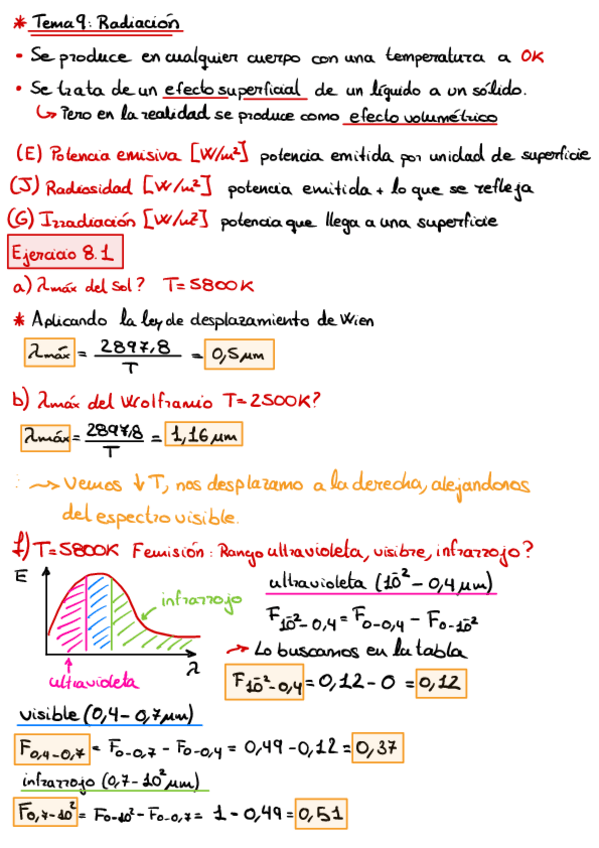 * Tema 9: Radiación
• Se produce en cualquier cuerpo con una temperatura a OK
• Se trata de un efecto superficial de un líquido a un sólido.
↳ Pero en la realidad se produce como efecto volumétrico
(E) Potencia emisiva [W/m²] potencia emitida por unidad de superficie
(J) Radiosidad [W/m²] potencia emitida + lo que se refleja
(G) Irradiación [W/m²] potencia que llega a una superficie
Ejercicio 8.1
a) λmáx del sol? T=5800K
* Aplicando la ley de desplazamiento de Wien
λmáx = 2897,8 / T = 0,5 μm
b) λmáx del Wolframio T=2500K?
λmáx = 2897,8 / T = 1,16 μm
: ⤳ Vemos ↓T, nos desplazamo a la derecha, alejandonos
del espectro visible.
f) T=5800K Femisión: Rango ultravioleta, visibre, infrarrojo?
E
infrarrojo
ultravioleta
λ
ultravioleta (10⁻² - 0,4 μm)
F10⁻²-0,4 = F0-0,4 - F0-10⁻²
→ Lo buscamos en la tabla
F10⁻²-0,4 = 0,12 - 0 = 0,12
visible (0,4 - 0,7 μm)
F0,4-0,7 = F0-0,7 - F0-0,4 = 0,49 - 0,12 = 0,37
infrarrojo (0,7 - 10² μm)
F0,7-10² = F0-10² - F0-0,7 = 1 - 0,49 = 0,51